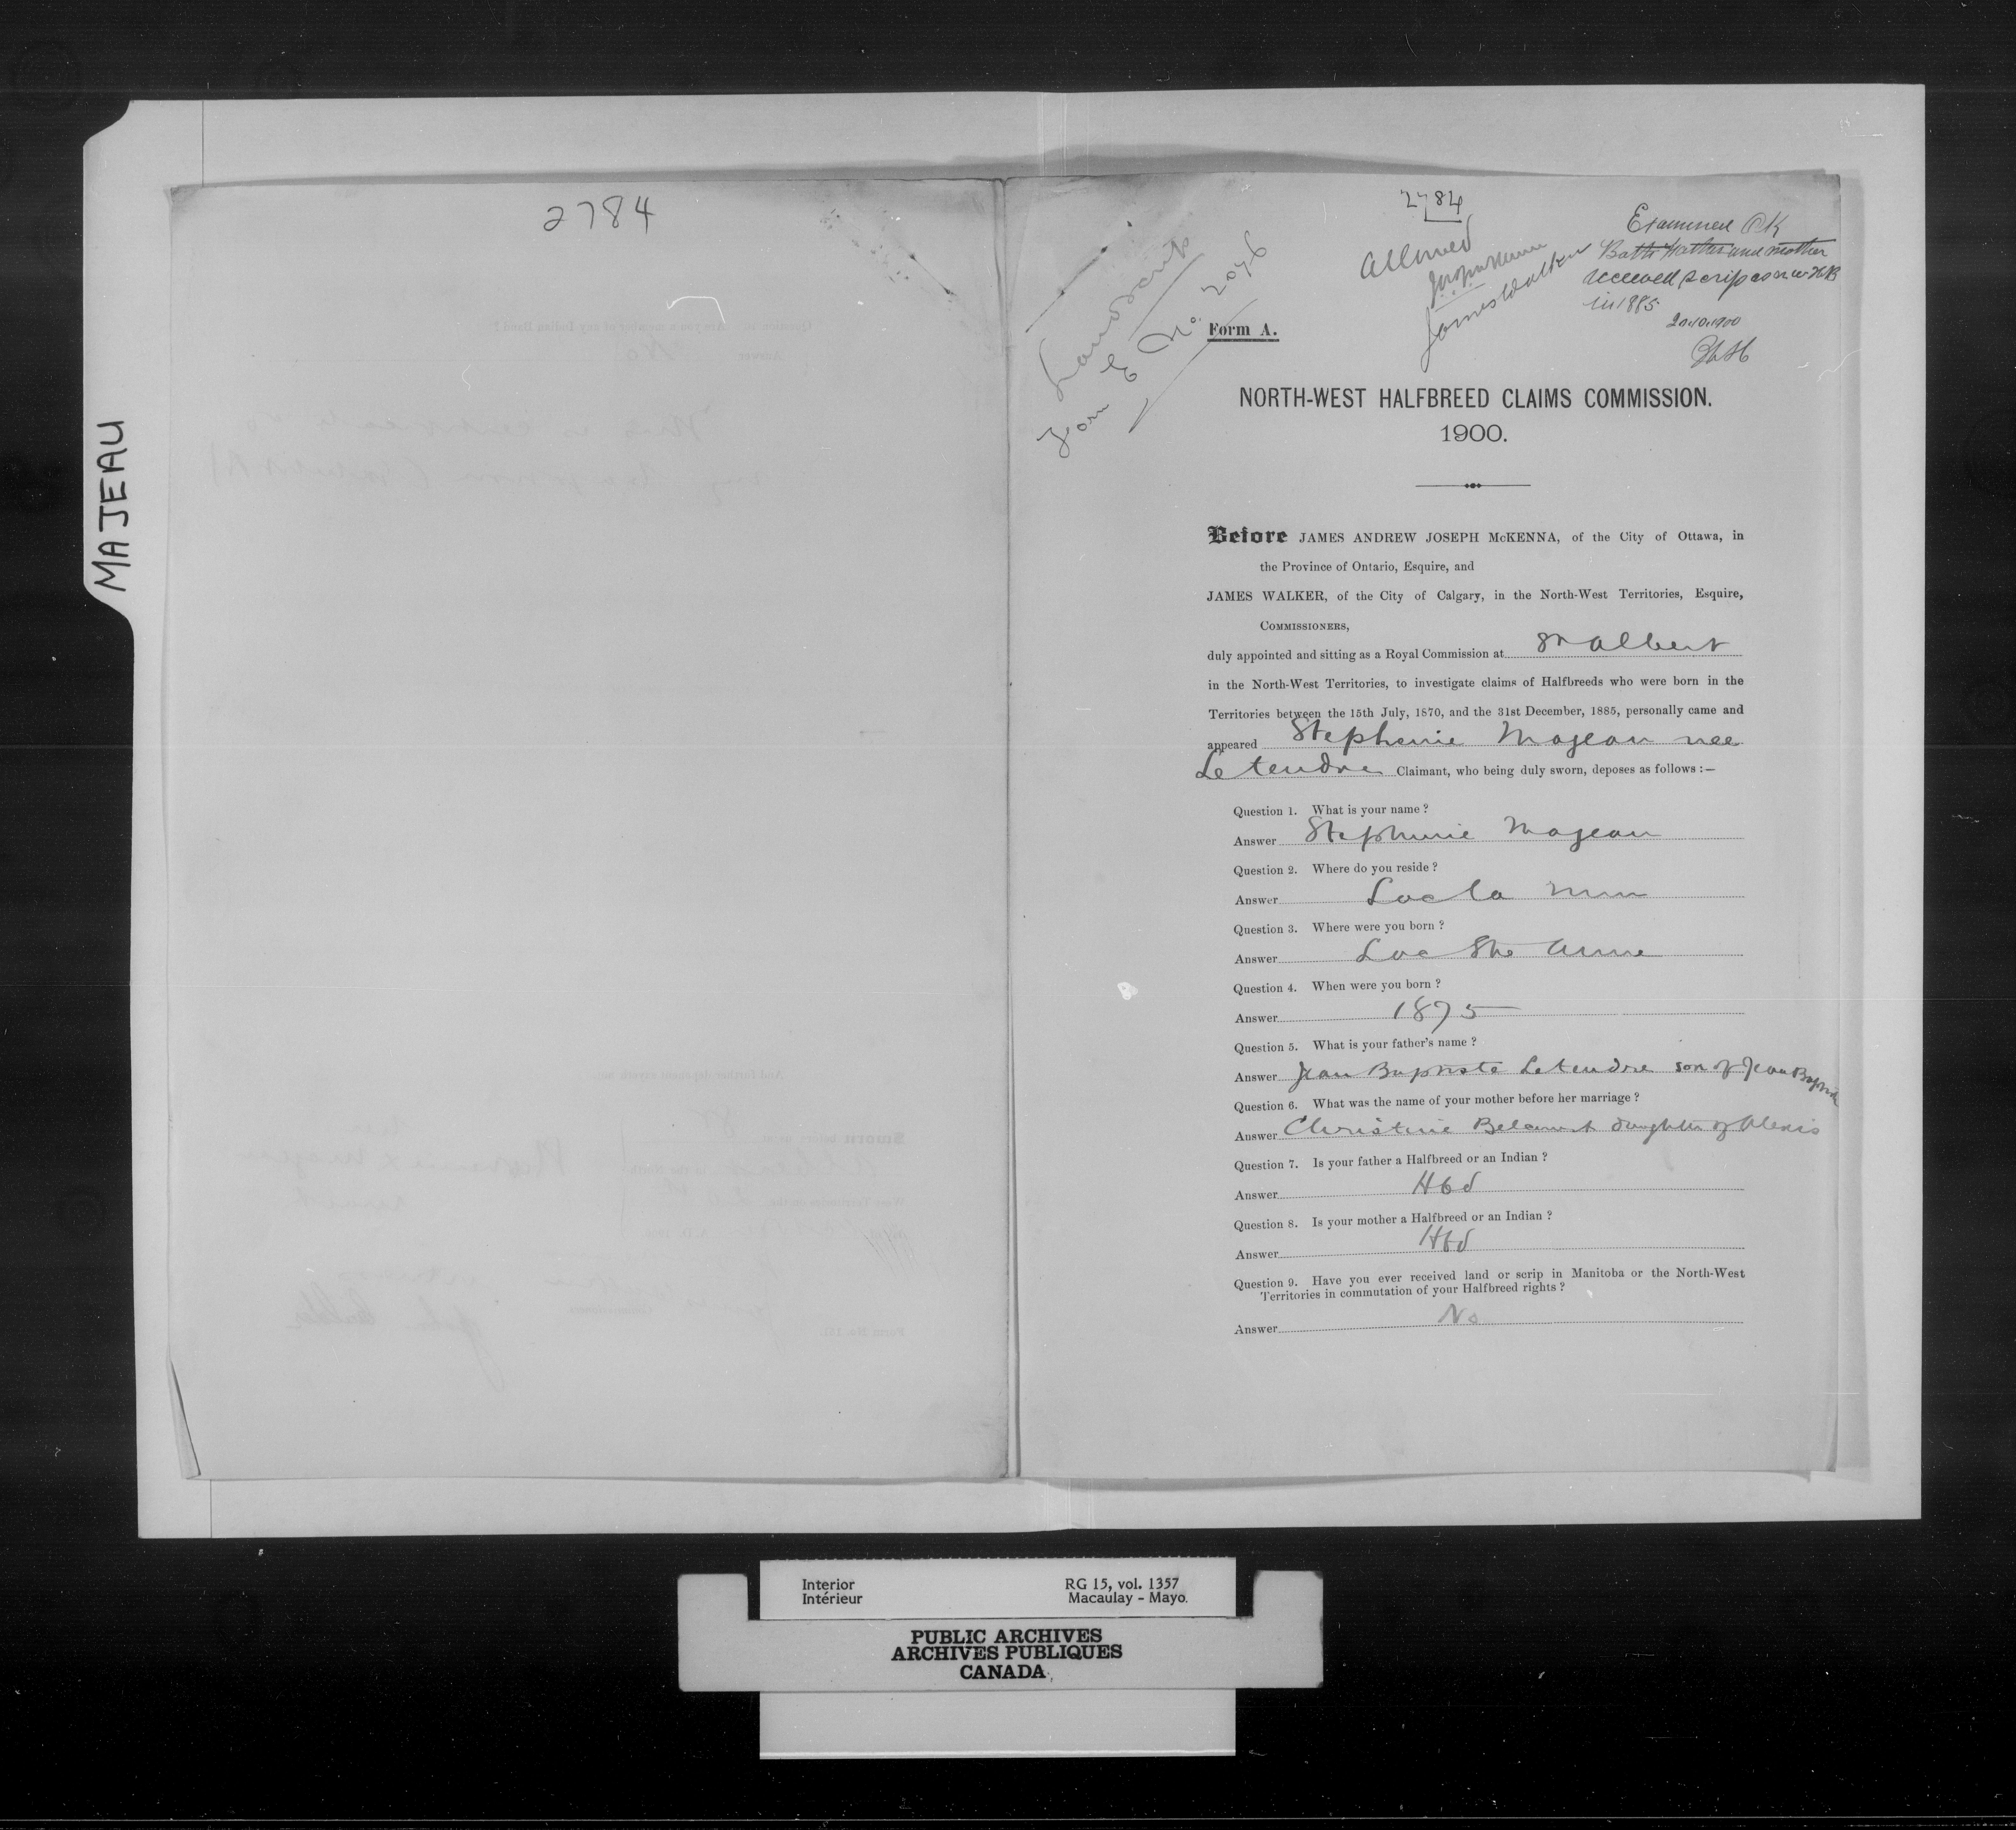 MAJEAU
2784
2784
Land Scrip
Form E No. 2076
Allowed
James Walker
Examined OK
Both Father and mother
received scrip as N W HB
in 1885
20.10.1900
Form A.
NORTH-WEST HALFBREED CLAIMS COMMISSION.
1900.
Before JAMES ANDREW JOSEPH McKENNA, of the City of Ottawa, in
the Province of Ontario, Esquire, and
JAMES WALKER, of the City of Calgary, in the North-West Territories, Esquire,
COMMISSIONERS,
duly appointed and sitting as a Royal Commission at St Albert
in the North-West Territories, to investigate claims of Halfbreeds who were born in the
Territories between the 15th July, 1870, and the 31st December, 1885, personally came and
appeared Stephenie Majeau nee
Letendre Claimant, who being duly sworn, deposes as follows :—
Question 1. What is your name ?
Answer Stephenie Majeau
Question 2. Where do you reside ?
Answer Lac la
Question 3. Where were you born ?
Answer Lac Ste Anne
Question 4. When were you born ?
Answer 1875
Question 5. What is your father's name ?
Answer Jean Baptiste Letendre son of Jean Baptiste
Question 6. What was the name of your mother before her marriage ?
Answer Christine Belcourt daughter of Alexis
Question 7. Is your father a Halfbreed or an Indian ?
Answer Hbd
Question 8. Is your mother a Halfbreed or an Indian ?
Answer Hbd
Question 9. Have you ever received land or scrip in Manitoba or the North-West
Territories in commutation of your Halfbreed rights ?
Answer No
Interior
Intérieur
RG 15, vol. 1357
Macaulay - Mayo.
PUBLIC ARCHIVES
ARCHIVES PUBLIQUES
CANADA